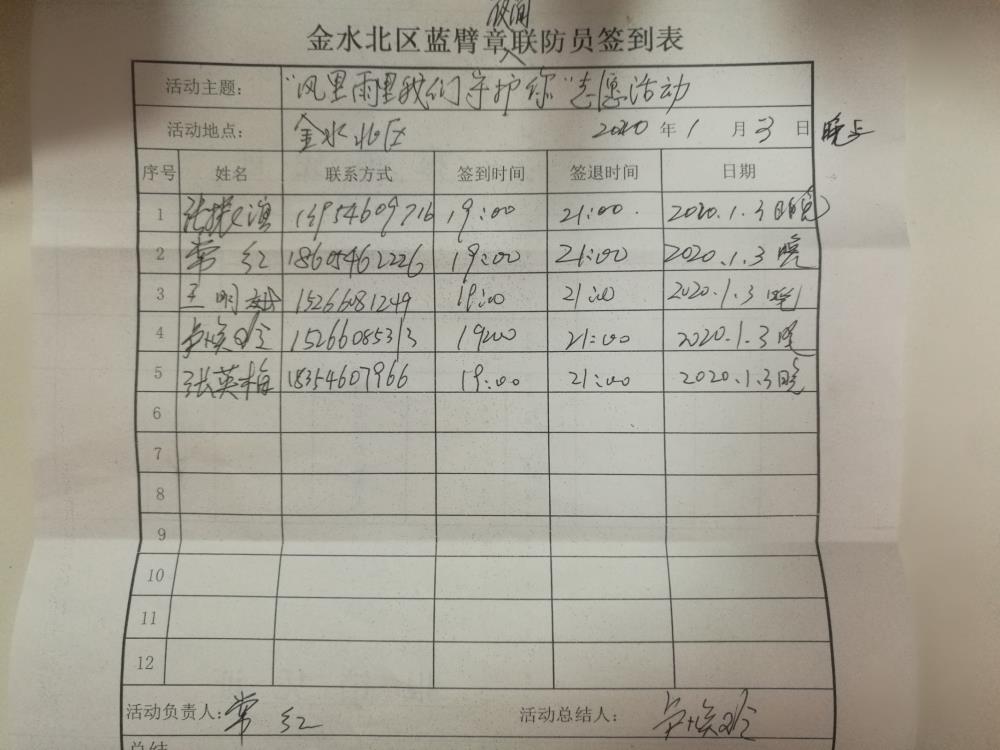 夜间
金水北区蓝臂章联防员签到表
活动主题： “风里雨里我们守护你”志愿活动
活动地点： 金水北区 2020 年 1 月 3 日 晚上
序号 姓名 联系方式 签到时间 签退时间 日期
1 张 13954609716 19:00 21:00. 2020.1.3晚
2 常红 18605462226 19:00 21:00 2020.1.3晚
3 王明 15266081249 19:00 21:00 2020.1.3晚
4 15266085313 1900 21:00 2020.1.3晚
5 张英梅 18354607966 19:00 21:00 2020.1.3晚
6
7
8
9
10
11
12
活动负责人： 常红 活动总结人：
总结